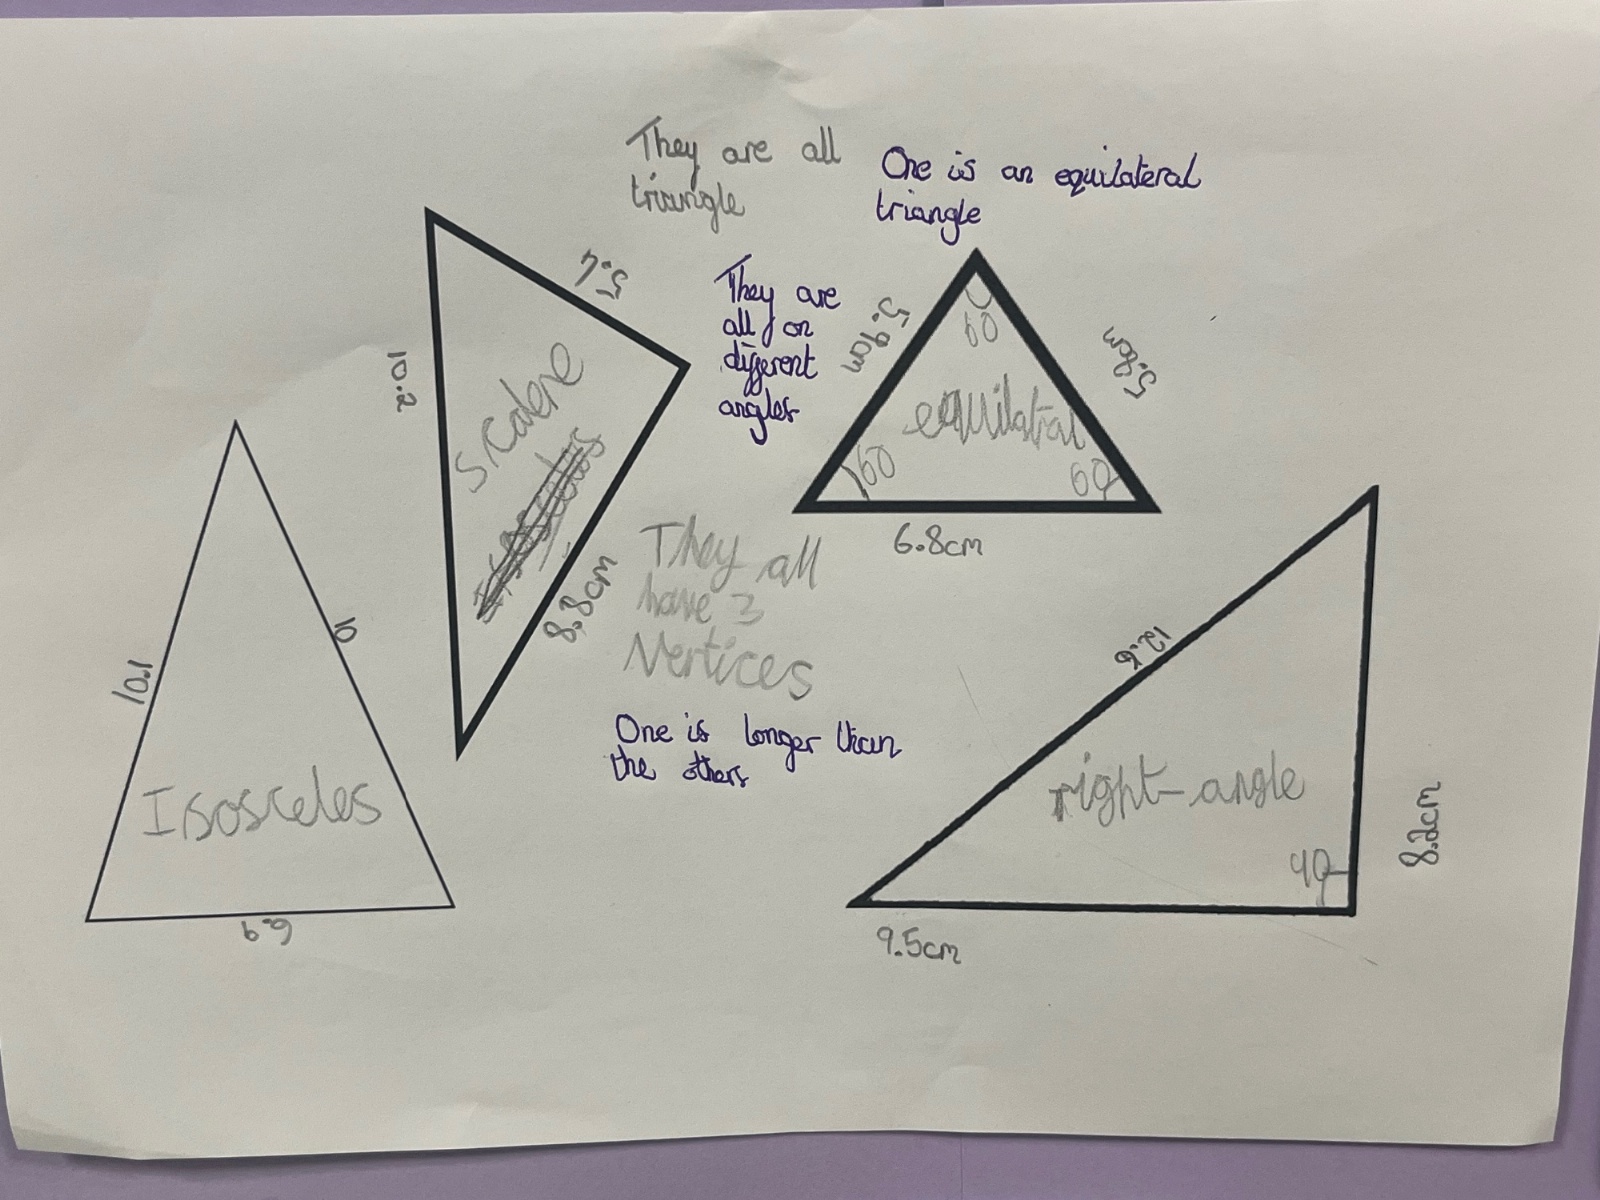 They are all
triangle
One is an equilateral
triangle
They are
all on
different
angles
5.4
10.2
scalene
8.8cm
5.9cm
5.8cm
60
equilatial
60
60
6.8cm
They all
have 3
Vertices
One is longer than
the others
10.1
10
Isosceles
6.9
12.6
right-angle
90
8.2cm
9.5cm